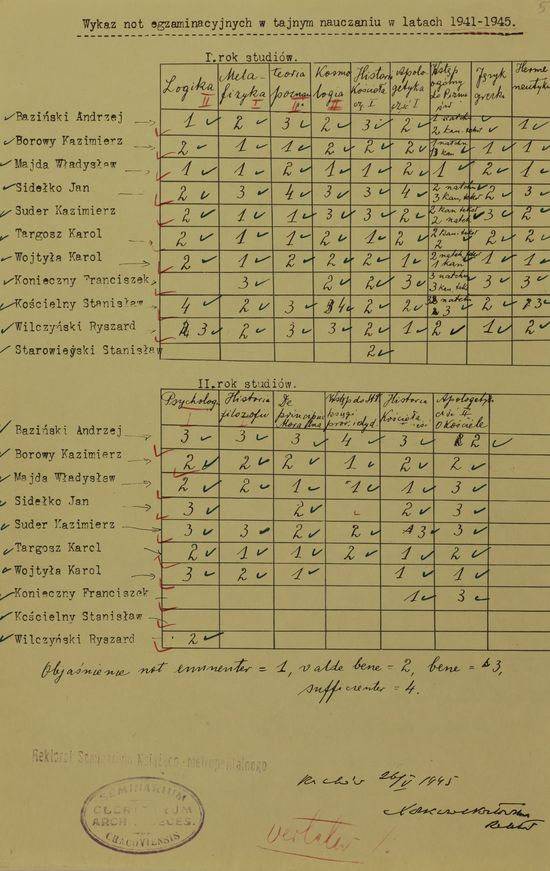 Wykaz not egzaminacyjnych w tajnym nauczaniu w latach 1941-1945.
I.rok studiów.
Logika II Meta-fizyka I teoria poznan. II Kosmologia II Historia Kościoła cz. I Apologetyka część I Wstęp ogólny do Pisma Św. Język grecki Herme neutyka
Baziński Andrzej 1 2 3 2 3 2 1 natchn 2 kan. tekst 1
Borowy Kazimierz 2 1 1 2 2 2 1 natchn 3 kan. 1 1
Majda Władysław 1 1 2 1 1 2 1 2 1
Sidełko Jan 2 3 4 3 3 4 2 natchn 3 kan. tekst 2 3
Suder Kazimierz 2 1 1 3 3 2 2 kan. tekst 2 natch 3 2
Targosz Karol 2 1 1 2 1 2 2 kan. tekst 2 2 2
Wojtyła Karol 2 1 2 2 2 1 2 natch 1 kan 1 1
Konieczny Franciszek 3 2 2 3 3 natchn 3 kan. tek 3 3
Kościelny Stanisław 4 2 3 4 2 2 natchn 3 2 3
Wilczyński Ryszard 3 2 3 3 2 1 2 1 2
Starowieyski Stanisław 2
II.rok studiów.
Psycholog. I Historia filozofii I De principiis Moralna Wstęp do St. T. księgi pror. i dyd. Historia Kościoła Apologetyk część II o Kościele
Baziński Andrzej 3 3 3 4 3 2
Borowy Kazimierz 2 2 2 1 2 2
Majda Władysław 2 2 1 1 1 3
Sidełko Jan 3 2 2 3
Suder Kazimierz 3 3 2 2 3 3
Targosz Karol 2 1 1 2 1 2
Wojtyła Karol 3 2 1 1 1
Konieczny Franciszek 1 3
Kościelny Stanisław
Wilczyński Ryszard 2
Objaśnienie not eminenter = 1, valde bene = 2, bene = 3,
sufficienter = 4.
Rektorat Seminarium Książęco-metropolitalnego
Kraków 26/V 1945
SEMINARIUM
CLERICORUM
ARCHIDIOECES.
CRACOVIENSIS
Rektor